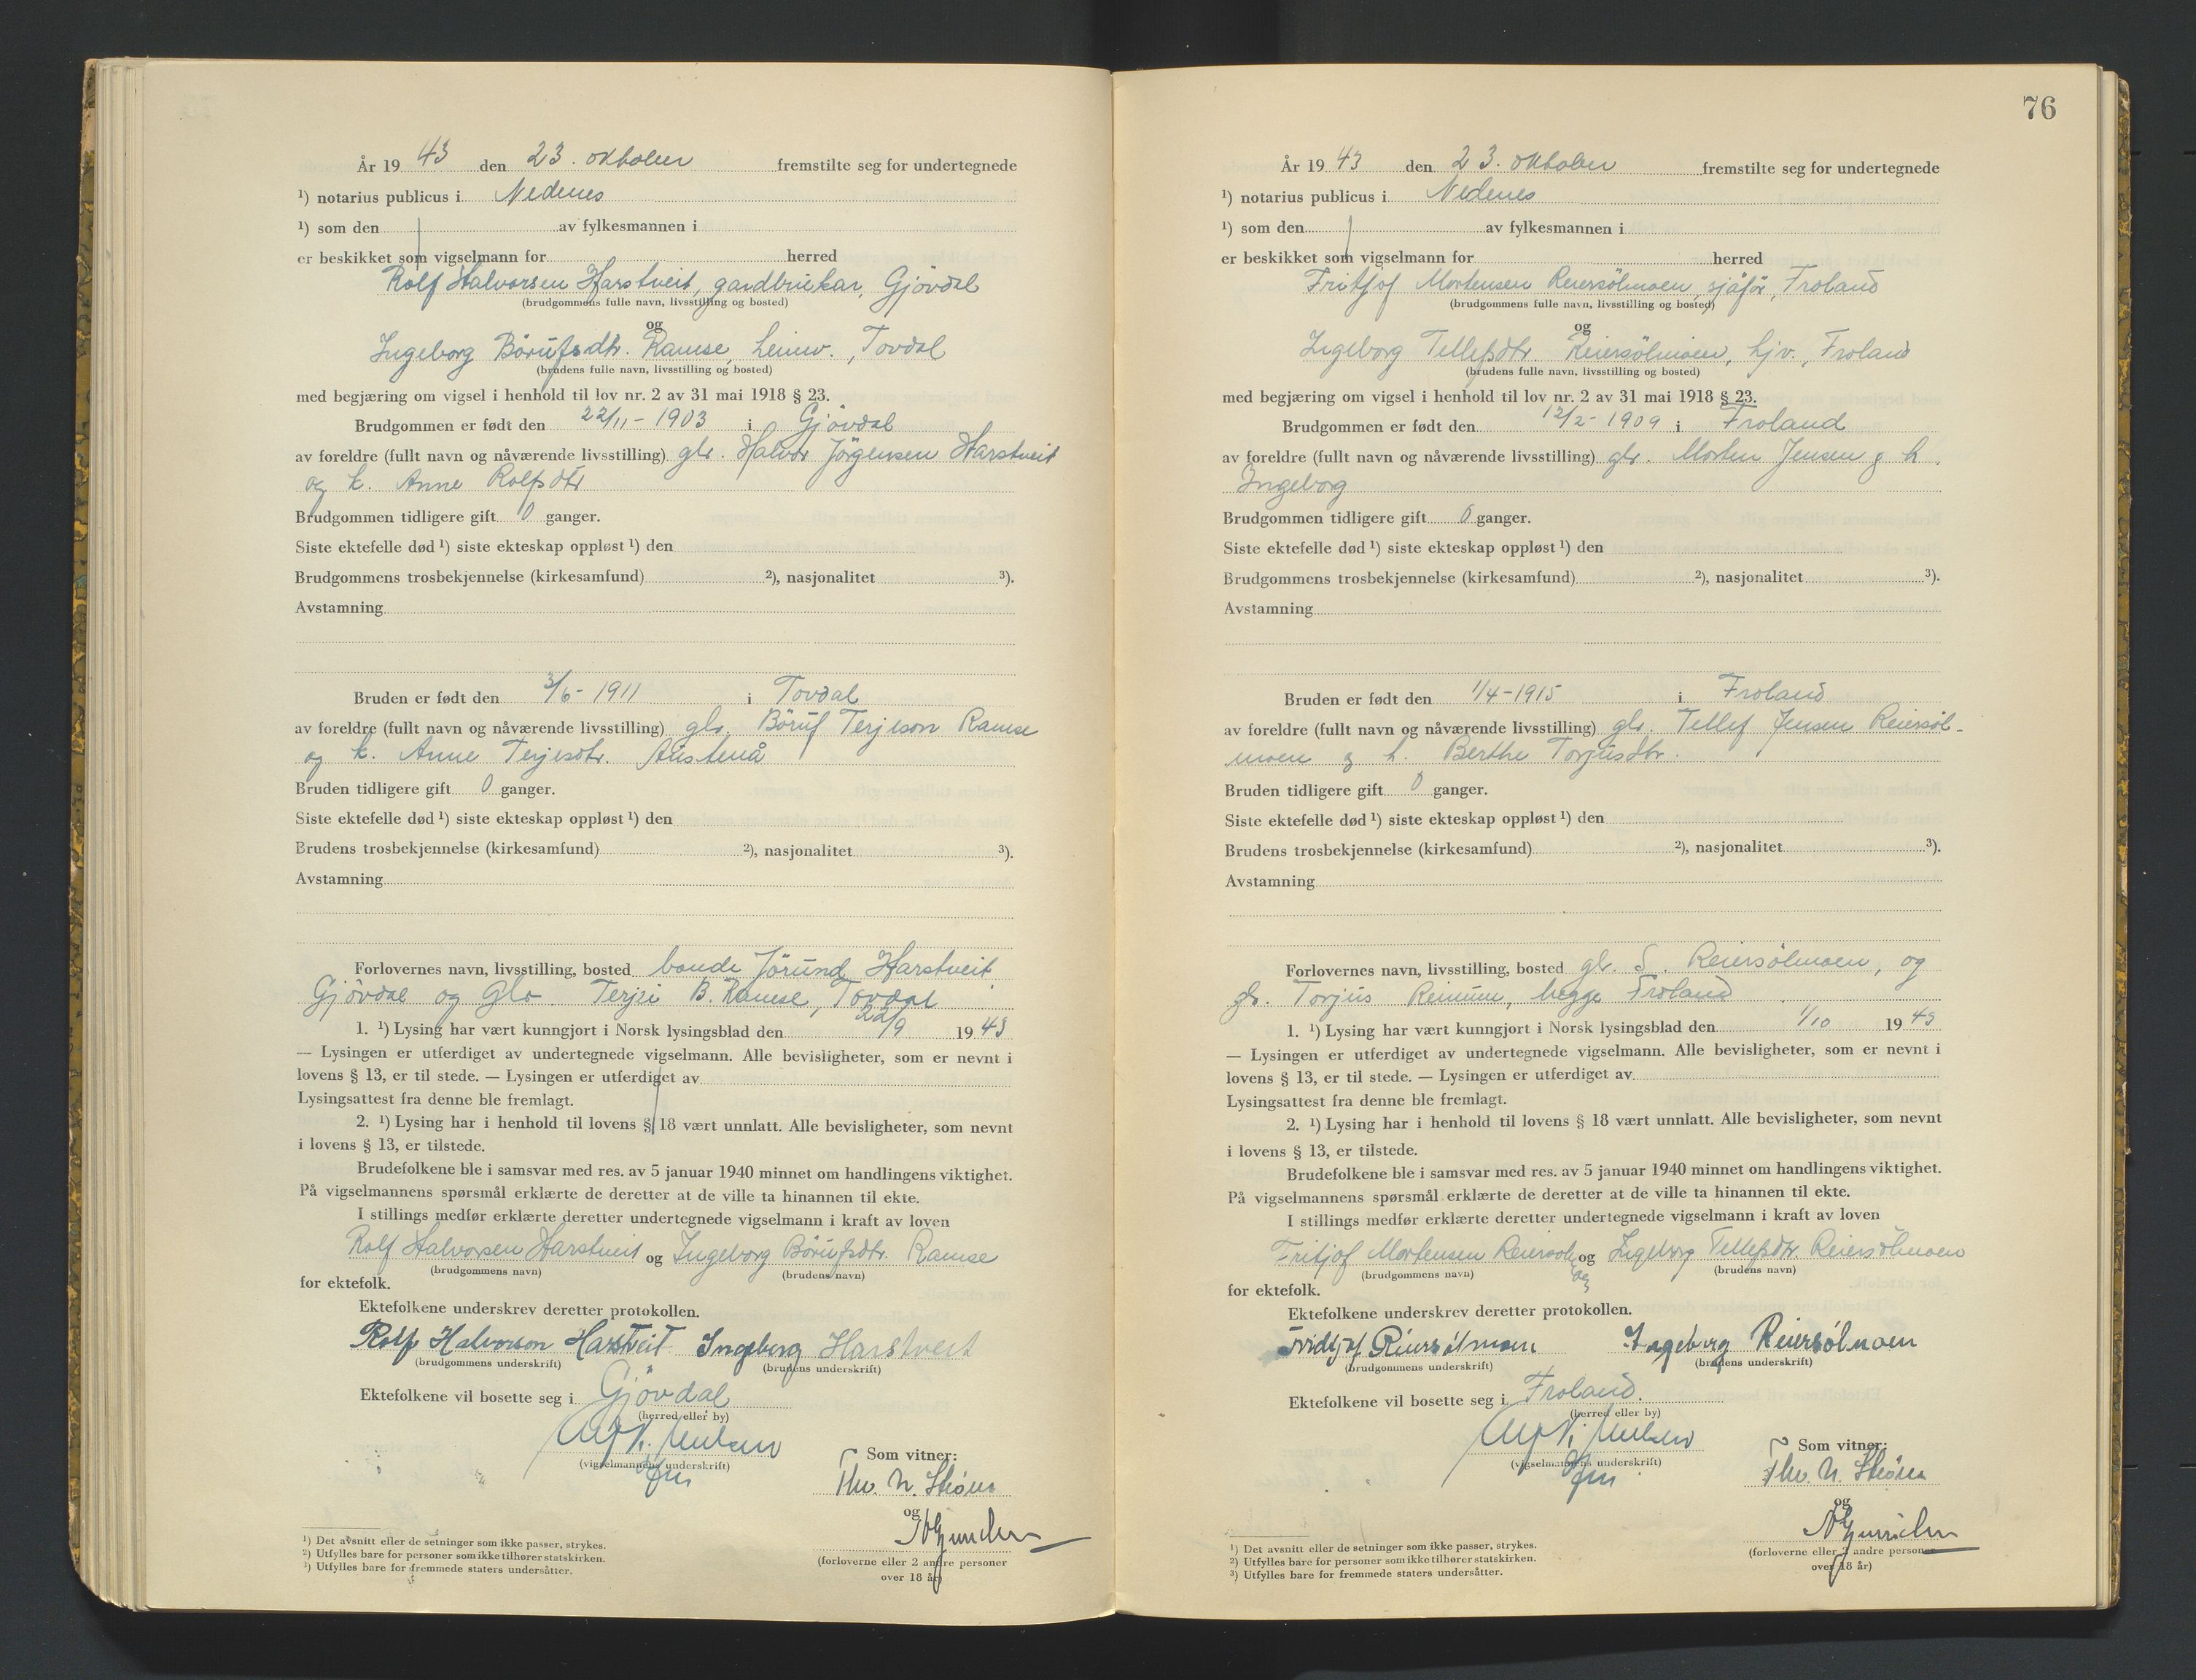 År 19 43 den 23. oktober fremstilte seg for undertegnede
¹) notarius publicus i Nedenes
¹) som den av fylkesmannen i
er beskikket som vigselmann for herred
Rolf Halvorsen Harstveit, gardbrukar, Gjövdal
(brudgommens fulle navn, livsstilling og bosted)
og
Ingeborg Börufsdtr. Ramse, heimv., Tovdal
(brudens fulle navn, livsstilling og bosted)
med begjæring om vigsel i henhold til lov nr. 2 av 31 mai 1918 § 23.
Brudgommen er født den 22/11 - 1903 i Gjövdal
av foreldre (fullt navn og nåværende livsstilling) gbr. Halvor Jörgensen Harstveit
og k. Anne Rolfsdtr
Brudgommen tidligere gift 0 ganger.
Siste ektefelle død ¹) siste ekteskap oppløst ¹) den
Brudgommens trosbekjennelse (kirkesamfund) ²), nasjonalitet ³).
Avstamning
Bruden er født den 3/6 - 1911 i Tovdal
av foreldre (fullt navn og nåværende livsstilling) gbr. Böruf Terjeson Ramse
og k. Anne Terjesdtr. Austenå
Bruden tidligere gift 0 ganger.
Siste ektefelle død ¹) siste ekteskap oppløst ¹) den
Brudens trosbekjennelse (kirkesamfund) ²), nasjonalitet ³).
Avstamning
Forlovernes navn, livsstilling, bosted bonde Jörund Harstveit,
Gjövdal og gbr Terjei B. Ramse, Tovdal
1. ¹) Lysing har vært kunngjort i Norsk lysingsblad den 22/9 19 43
— Lysingen er utferdiget av undertegnede vigselmann. Alle bevisligheter, som er nevnt i
lovens § 13, er til stede. — Lysingen er utferdiget av
Lysingsattest fra denne ble fremlagt.
2. ¹) Lysing har i henhold til lovens § 18 vært unnlatt. Alle bevisligheter, som nevnt
i lovens § 13, er tilstede.
Brudefolkene ble i samsvar med res. av 5 januar 1940 minnet om handlingens viktighet.
På vigselmannens spørsmål erklærte de deretter at de ville ta hinannen til ekte.
I stillings medfør erklærte deretter undertegnede vigselmann i kraft av loven
Rolf Halvorsen Harstveit og Ingeborg Börufsdtr. Ramse
(brudgommens navn) (brudens navn)
for ektefolk.
Ektefolkene underskrev deretter protokollen.
Rolf Halvorson Harstveit Ingeborg Harstveit
(brudgommens underskrift) (brudens underskrift)
Ektefolkene vil bosette seg i Gjövdal
(herred eller by)
(vigselmannens underskrift)
Som vitner:
Thv. N.
og
(forloverne eller 2 andre personer
over 18 år)
¹) Det avsnitt eller de setninger som ikke passer, strykes.
²) Utfylles bare for personer som ikke tilhører statskirken.
³) Utfylles bare for fremmede staters undersåtter.
76
År 19 43 den 23. oktober fremstilte seg for undertegnede
¹) notarius publicus i Nedenes
¹) som den av fylkesmannen i
er beskikket som vigselmann for herred
Fritjof Mortensen Reiersölmoen, sjåför, Froland
(brudgommens fulle navn, livsstilling og bosted)
og
Ingeborg Tellefsdtr Reiersölmoen, hjv., Froland
(brudens fulle navn, livsstilling og bosted)
med begjæring om vigsel i henhold til lov nr. 2 av 31 mai 1918 § 23.
Brudgommen er født den 12/2 - 1909 i Froland
av foreldre (fullt navn og nåværende livsstilling) gbr. Morten Jensen & h.
Ingeborg
Brudgommen tidligere gift 0 ganger.
Siste ektefelle død ¹) siste ekteskap oppløst ¹) den
Brudgommens trosbekjennelse (kirkesamfund) ²), nasjonalitet ³).
Avstamning
Bruden er født den 1/4 - 1915 i Froland
av foreldre (fullt navn og nåværende livsstilling) gbr. Tellef Jensen Reiersöl-
moen & h. Berthe Torjusdtr.
Bruden tidligere gift 0 ganger.
Siste ektefelle død ¹) siste ekteskap oppløst ¹) den
Brudens trosbekjennelse (kirkesamfund) ²), nasjonalitet ³).
Avstamning
Forlovernes navn, livsstilling, bosted gbr. S. Reiersölmoen, og
gbr. Torjus begge Froland
1. ¹) Lysing har vært kunngjort i Norsk lysingsblad den 1/10 19 43
— Lysingen er utferdiget av undertegnede vigselmann. Alle bevisligheter, som er nevnt i
lovens § 13, er til stede. — Lysingen er utferdiget av
Lysingsattest fra denne ble fremlagt.
2. ¹) Lysing har i henhold til lovens § 18 vært unnlatt. Alle bevisligheter, som nevnt
i lovens § 13, er tilstede.
Brudefolkene ble i samsvar med res. av 5 januar 1940 minnet om handlingens viktighet.
På vigselmannens spørsmål erklærte de deretter at de ville ta hinannen til ekte.
I stillings medfør erklærte deretter undertegnede vigselmann i kraft av loven
Fritjof Mortensen Reiersöl og Ingeborg Tellefsdtr Reiersölmoen
(brudgommens navn) (brudens navn)
for ektefolk.
Ektefolkene underskrev deretter protokollen.
Fridtjof Reiersölmoen Ingeborg Reiersölmoen
(brudgommens underskrift) (brudens underskrift)
Ektefolkene vil bosette seg i Froland.
(herred eller by)
(vigselmannens underskrift)
Som vitner:
Thv. N.
og
(forloverne eller 2 andre personer
over 18 år)
¹) Det avsnitt eller de setninger som ikke passer, strykes.
²) Utfylles bare for personer som ikke tilhører statskirken.
³) Utfylles bare for fremmede staters undersåtter.